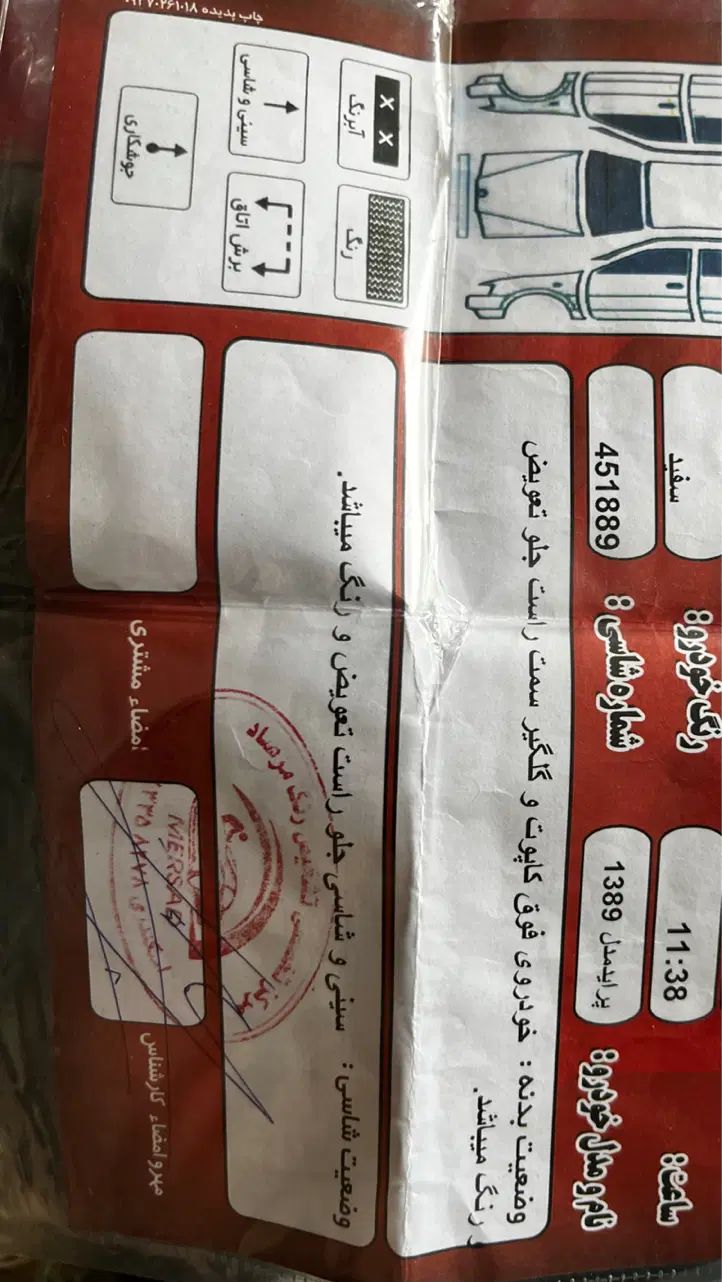 ساعت: 11:38
رنگ خودرو: سفید
نام و مدل خودرو: پرایدمدل 1389
شماره شاسی: 451889
وضعیت بدنه : خودروی فوق کاپوت و گلگیر سمت راست جلو تعویض
و رنگ میباشد.
وضعیت شاسی : سینی و شاسی جلو راست تعویض و رنگ میباشد.
مهر و امضاء کارشناس
امضاء مشتری
تشخیص رنگ مرصاد
MERSAD
X X
آبرنگ
رنگ
سینی و شاسی
برش اتاق
جوشکاری
چاپ پدیده